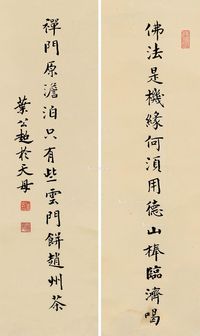 佛法是機緣何須用德山棒臨濟喝
禪門原澹泊只有些雲門餅趙州茶
葉公超於天母